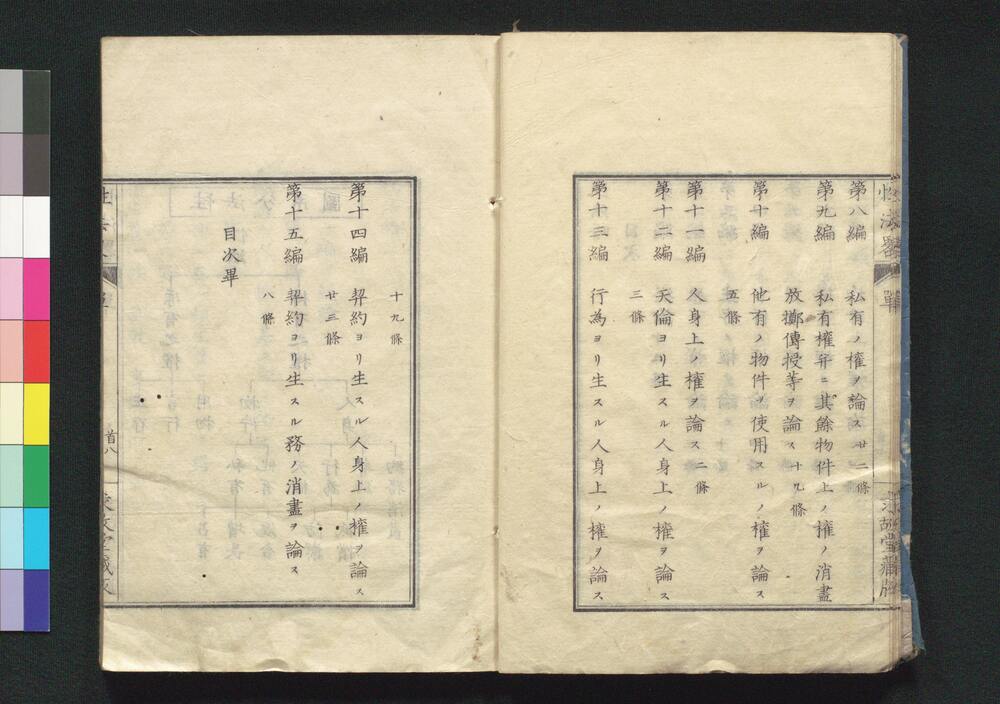 性法略
單
求故堂藏版
第八編 私有ノ權ヲ論ス 廿二條
第九編 私有權并ニ其餘物件上ノ權ノ消盡
放擲傳授等ヲ論ス 十九條
第十編 他有ノ物件ヲ使用スルノ權ヲ論ス
五條
第十一編 人身上ノ權ヲ論ス 二條
第十二編 天倫ヨリ生スル人身上ノ權ヲ論ス
三條
第十三編 行為ヨリ生スル人身上ノ權ヲ論ス
十九條
第十四編 契約ヨリ生スル人身上ノ權ヲ論ス
廿三條
第十五編 契約ヨリ生スル務ノ消盡ヲ論ス
八條
目次畢
首八